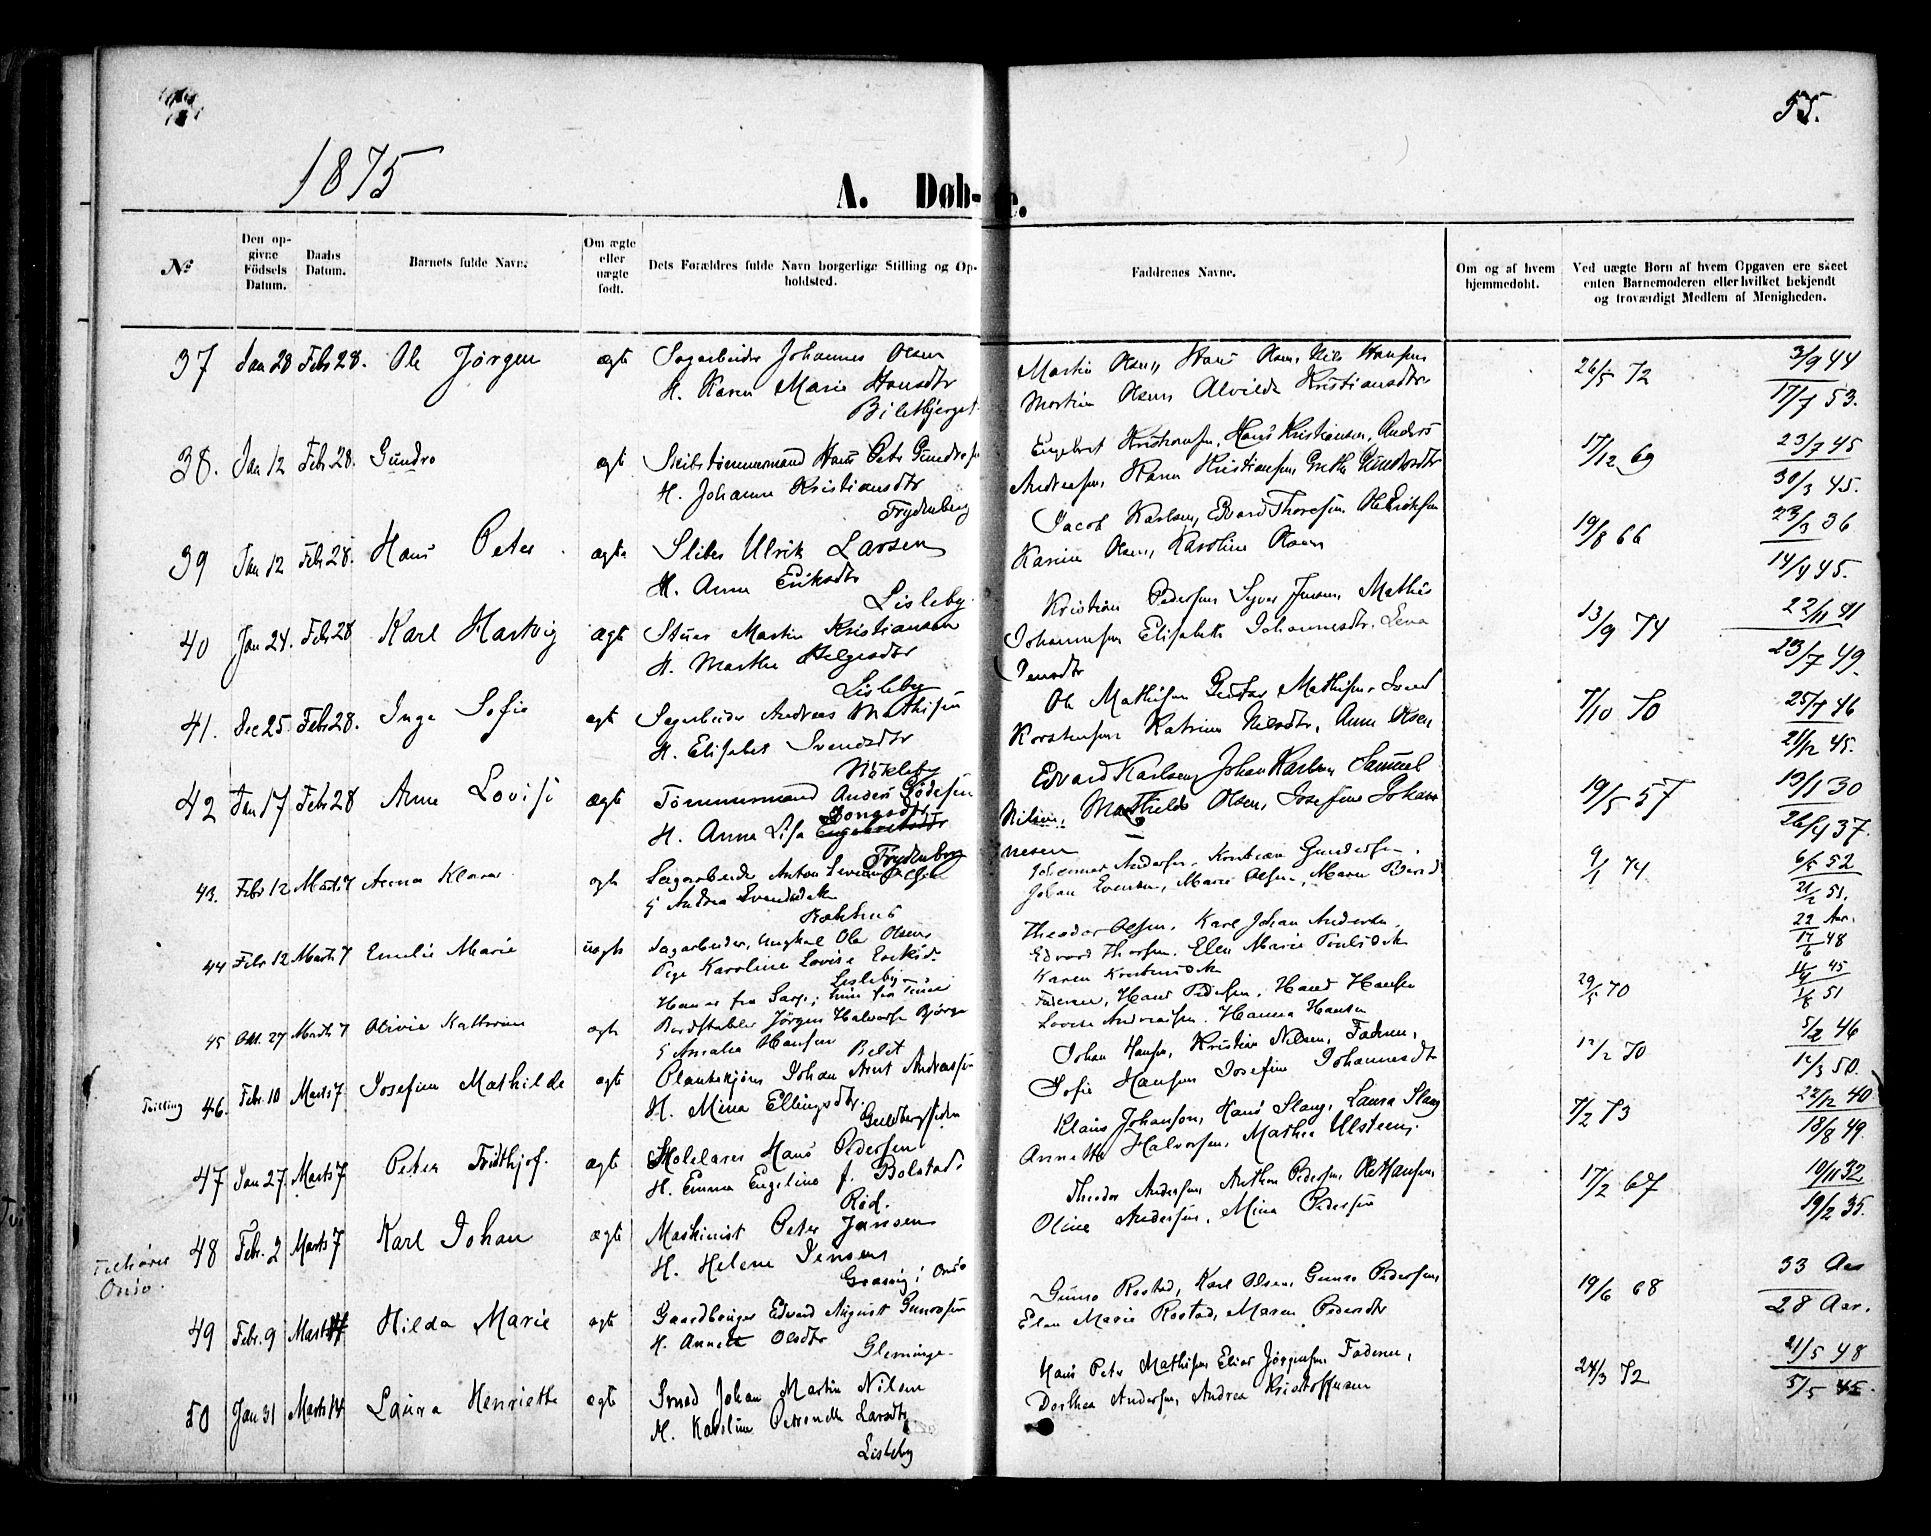 55.
1875
A. Døb-te.
No
Den op-
givne
Födsels
Datum.
Daabs
Datum.
Barnets fulde Navn.
Om ægte
eller
uægte
født.
Dets Forældres fulde Navn borgerlige Stilling og Op-
holdsted.
Faddrenes Navne.
Om og af hvem
hjemmedöbt.
Ved uægte Børn af hvem Opgaven ere skeet
enten Barnemoderen eller hvilket bekjendt
og troværdigt Medlem af Menigheden.
37 Jan 20 Febr 28. Ole Jørgen ægte Sagarbeider Johannes Olsen
H. Karen Marie Hansdtr
Martin Olsen, Hans Olsen, Nils Hansen
Martin Olsen Alvilde Kristiansdtr
26/5 72
3/9 44
17/7 53.
38. Jan 12 Febr. 28. Gundro ægte Skibstømmermand Hans Petr
H. Johanne Kristiansdtr
Frydenberg
Engebret Hans Kristiansen, Anders
Andreasen, Karen Kristiansen
17/12 69
23/7 45
30/3 45.
39 Jan 12 Febr 28. Hans Peter ægte Sliber Ulrik Larsen
H. Anne Eriksdtr
Lisleby.
Jacob Karlsen, Edvard Thoresen
Karine Olsen, Karoline Olsen
19/8 66
23/3 36
14/4 45.
40 Jan 24. Febr 28 Karl Hartvig ægte Stuer Martin Kristiansen
H. Marthe Helgesdtr
Lisleby
Kristian Pedersen Syver Jensen, Mathis
Johannesen Elisabeth Johannesdtr. Lena
Jensdtr
13/9 74
22/11 41
23/7 49.
41. Dec 25. Febr 28. Inga Sofie ægte Sagarbeider Andreas Mathisen
H. Elisabet Svendsdtr
Nökleby
Ole Mathisen Gustav Mathisen
Katrine Nilsdtr, Anne Olsen
7/10 70
25/7 46
21/12 45.
42 Jan 17 Febr 28 Anne Lovise ægte Tømmermand Anders
H. Anna Lisa
Frydenberg
Edvard Karlsen, Johan Karlsen Samuel
Nilsen, Mathilde Olsen, Josefine Johan
nesen
19/5 57
13/1 30
26/4 37.
43. Febr 12 Marts 7 Anna Klara ægte Sagarbeider Anton
G Andrea Svendsdatter
Andersen, Kristian Gundersen,
Johan Evensen, Marie Olsen, Maren
9/1 74
6/5 52
21/2 51.
44 Febr 12 Marts 7 Emilie Marie uægte Sagarbeider, Ungkarl Ole Olsen
Pige Karoline Lovise
Lisleby
Theodor Olsen, Karl Johan Andersen
Edvard Thorsen, Ellen Marie
Karen
22 Aar.
17/6 48
45 Okt. 27 Marts 7 Olivie Kathrine ægte Bordstabler Jørgen
G Amalia Hansen
Faderen, Hans Pedersen, Hans Hansen
Lovise Andreasen, Hanna Hansen
29/5 70
45
51
Tvilling 46. Febr. 10 Marts 7 Josefine Mathilde ægte Plankekjører Johan Arnt Andreassen
H. Mina Ellingsdtr.
Johan Hansen, Kristian Nilsen, Faderen,
Sofie Hansen Josefine Johannesdtr
12/2 70
5/2 46
12/3 50.
47 Jan 27. Marts 7 Peter Fridthjof. ægte Skolelærer Hans Pedersen
H. Emma Engeline f. Bolstad
Röd.
Klaus Johanson, Hans Slang, Laura Slang
Annette Halvorsen, Mathea Ulsteen,
7/2 73
22/12 40
18/8 49.
Onsö.
48 Febr. 2 Marts 7 Karl Johan ægte Maskinist Peter Jansen
H. Helene Jensen
i Onsö
Theodor Andersen, Anthon Pedersen, Ole Hansen
Oline Andersen, Mina Pedersen
17/2 67
10/11 32
19/2 35.
49 Febr. 9 Marts Hilda Marie ægte Gaardbruger Edvard August
H. Annette Olsdtr
Glemminge.
Rostad, Karl Olsen, Pedersen,
Elen Marie Rostad, Maren Pedersdtr
19/6 68
33 Aar
28 Aar.
50 Jan 31 Marts 14 Laura Henriette ægte Smed Johan Martin Nilsen
H. Karoline Petronelle Larsdtr
Lisleby
Hans Peter Mathisen Elias Jörgensen Faderen,
Dorthea Andersen, Andrea Kristoffersen
24/3 72
21/5 48
5/5 45.